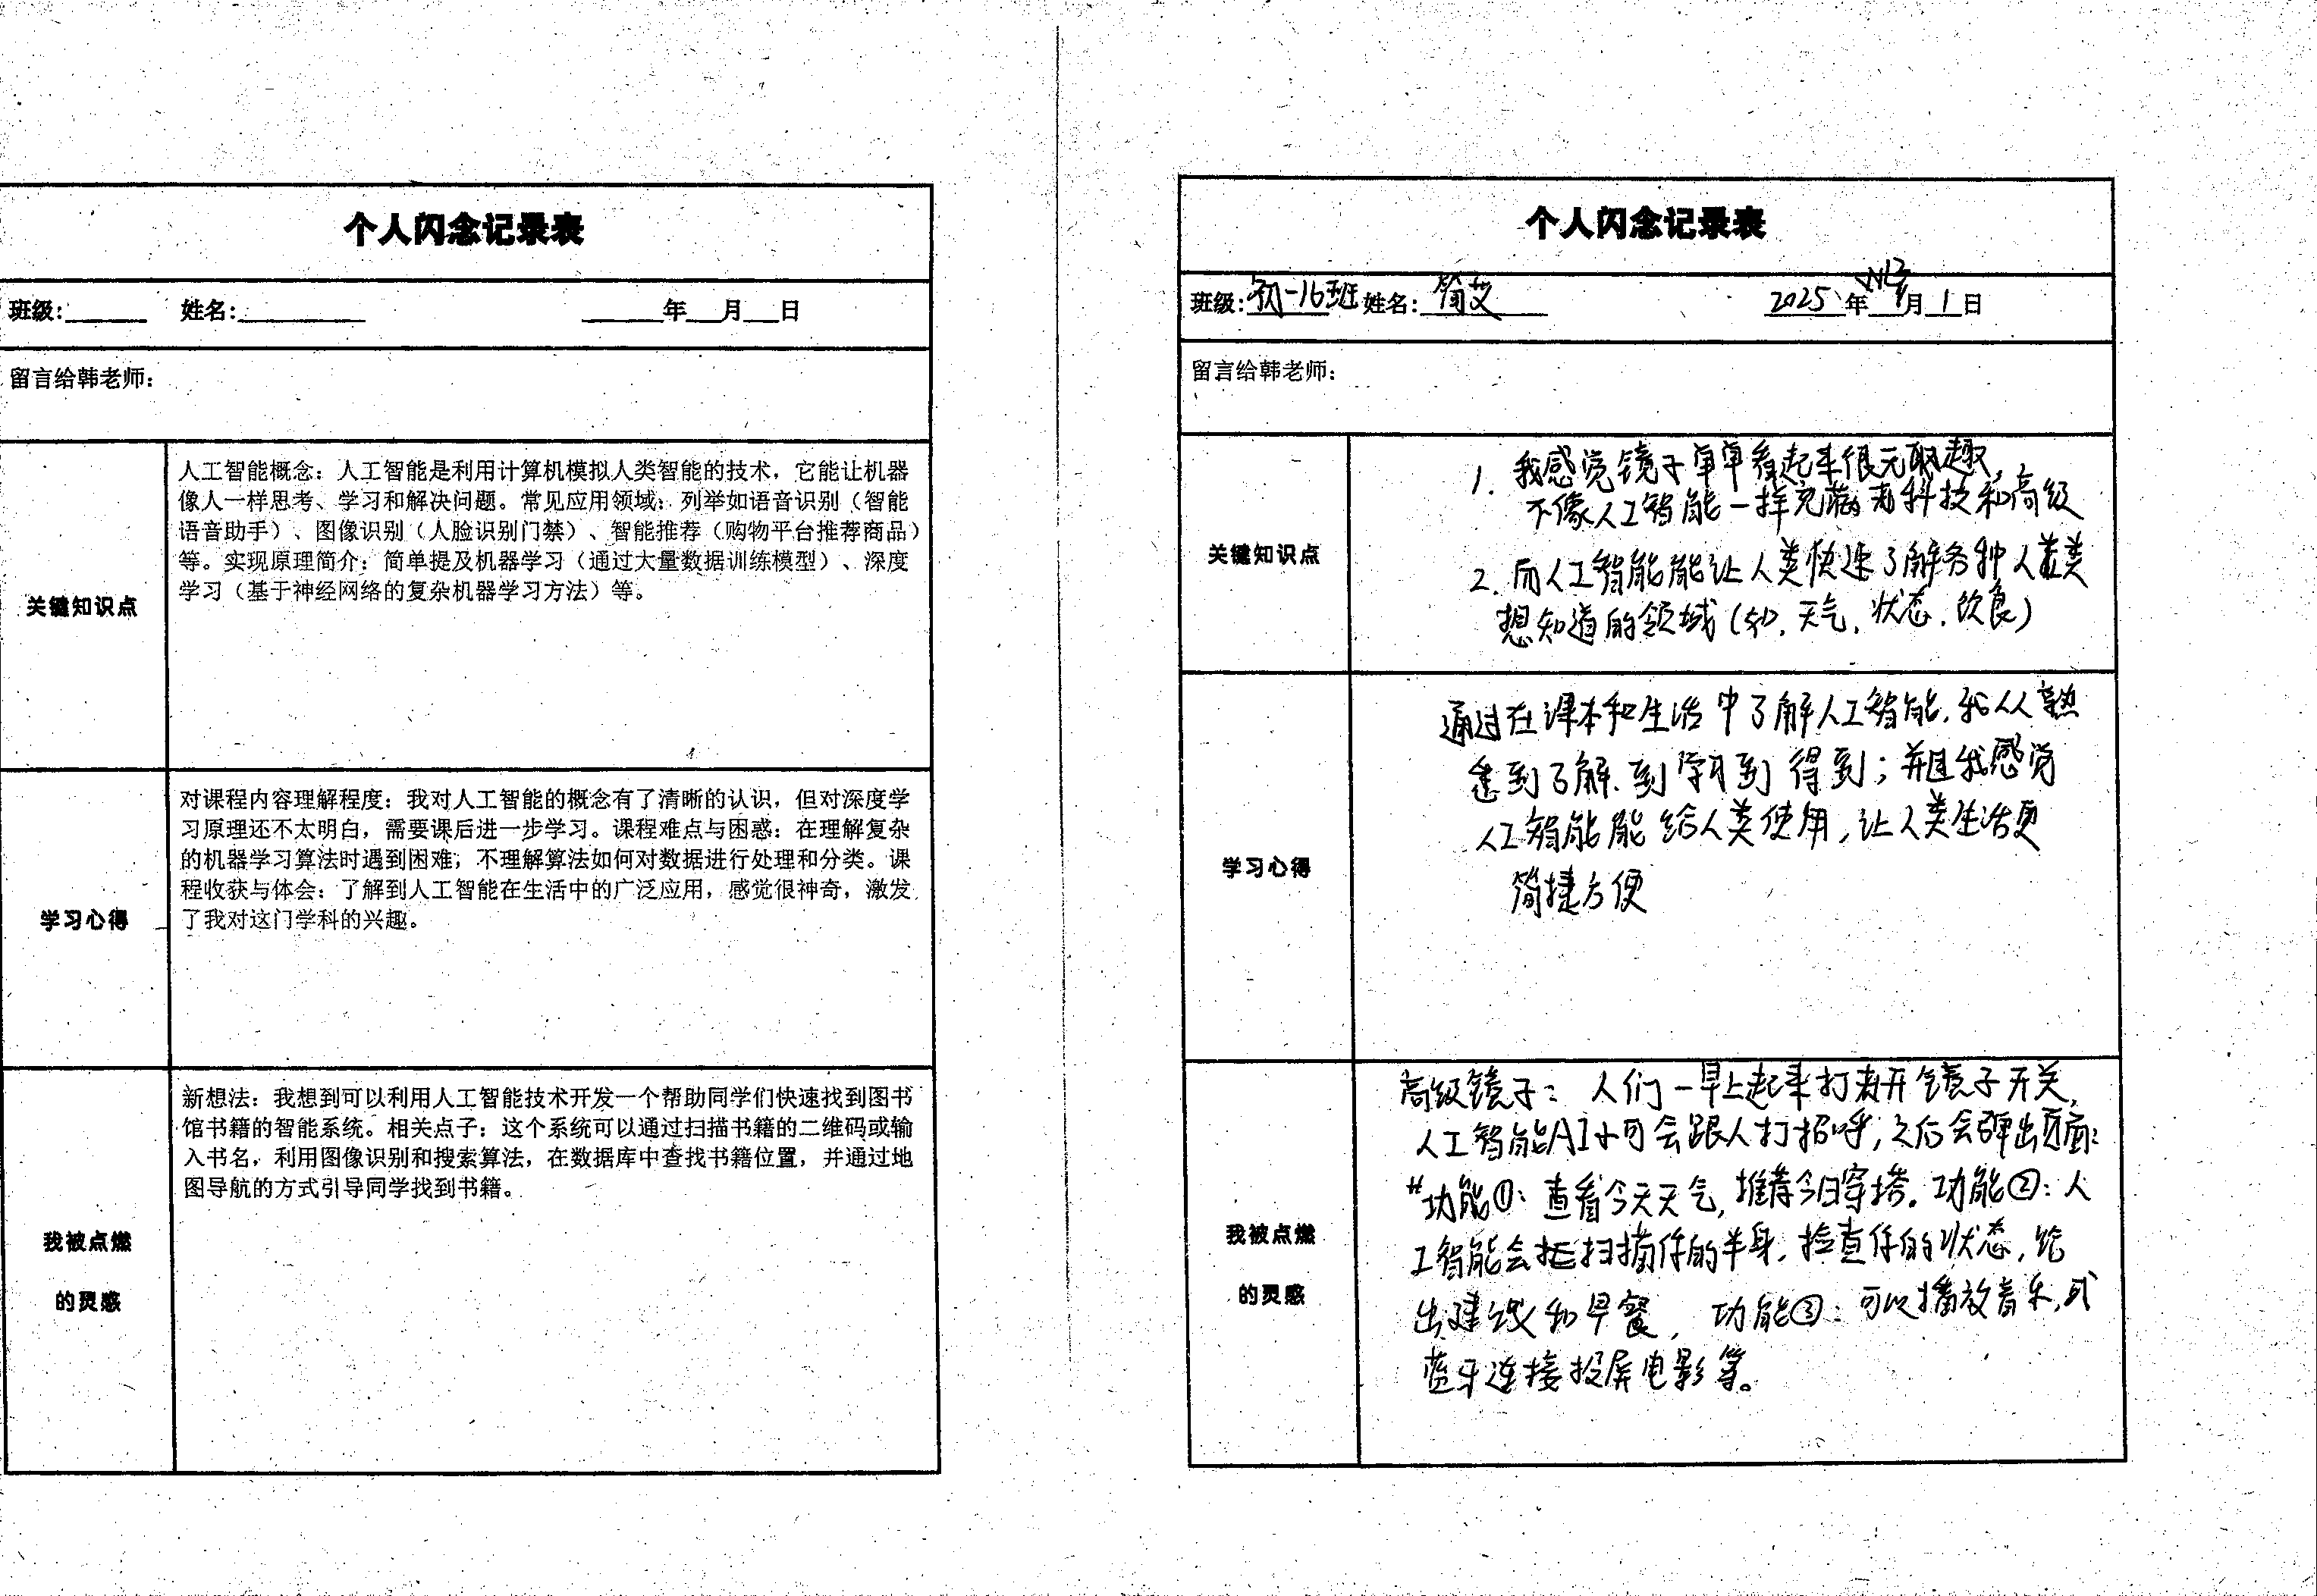 个人闪念记录表
班级:______ 姓名:_________ ______年__月__日
留言给韩老师:
关键知识点
人工智能概念：人工智能是利用计算机模拟人类智能的技术，它能让机器
像人一样思考、学习和解决问题。常见应用领域：列举如语音识别（智能
语音助手）、图像识别（人脸识别门禁）、智能推荐（购物平台推荐商品）
等。实现原理简介：简单提及机器学习（通过大量数据训练模型）、深度
学习（基于神经网络的复杂机器学习方法）等。
学习心得
对课程内容理解程度：我对人工智能的概念有了清晰的认识，但对深度学
习原理还不太明白，需要课后进一步学习。课程难点与困惑：在理解复杂
的机器学习算法时遇到困难，不理解算法如何对数据进行处理和分类。课
程收获与体会：了解到人工智能在生活中的广泛应用，感觉很神奇，激发
了我对这门学科的兴趣。
我被点燃
的灵感
新想法：我想到可以利用人工智能技术开发一个帮助同学们快速找到图书
馆书籍的智能系统。相关点子：这个系统可以通过扫描书籍的二维码或输
入书名，利用图像识别和搜索算法，在数据库中查找书籍位置，并通过地
图导航的方式引导同学找到书籍。
个人闪念记录表
班级:初一16班 姓名:简艾 2025年 月1日
留言给韩老师:
关键知识点
1. 我感觉镜子单单看起来很无趣，
不像人工智能一样充满着科技和高级
2. 而人工智能能让人类快速了解各种人类
想知道的领域(如，天气，状态，饮食)
学习心得
通过在课本和生活中了解人工智能，我从熟
悉到了解，到学习到得到；并且我感觉
人工智能能给人类使用，让人类生活更
简捷方便
我被点燃
的灵感
高级镜子：人们一早上起来打开镜子开关，
人工智能AI小可会跟人打招呼，之后会弹出页面：
功能①：查看今天天气，推荐今日穿搭。功能②：人
工智能会扫描你的半身，检查你的状态，给
出建议和早餐，功能③：可以播放音乐，或
蓝牙连接投屏电影等。